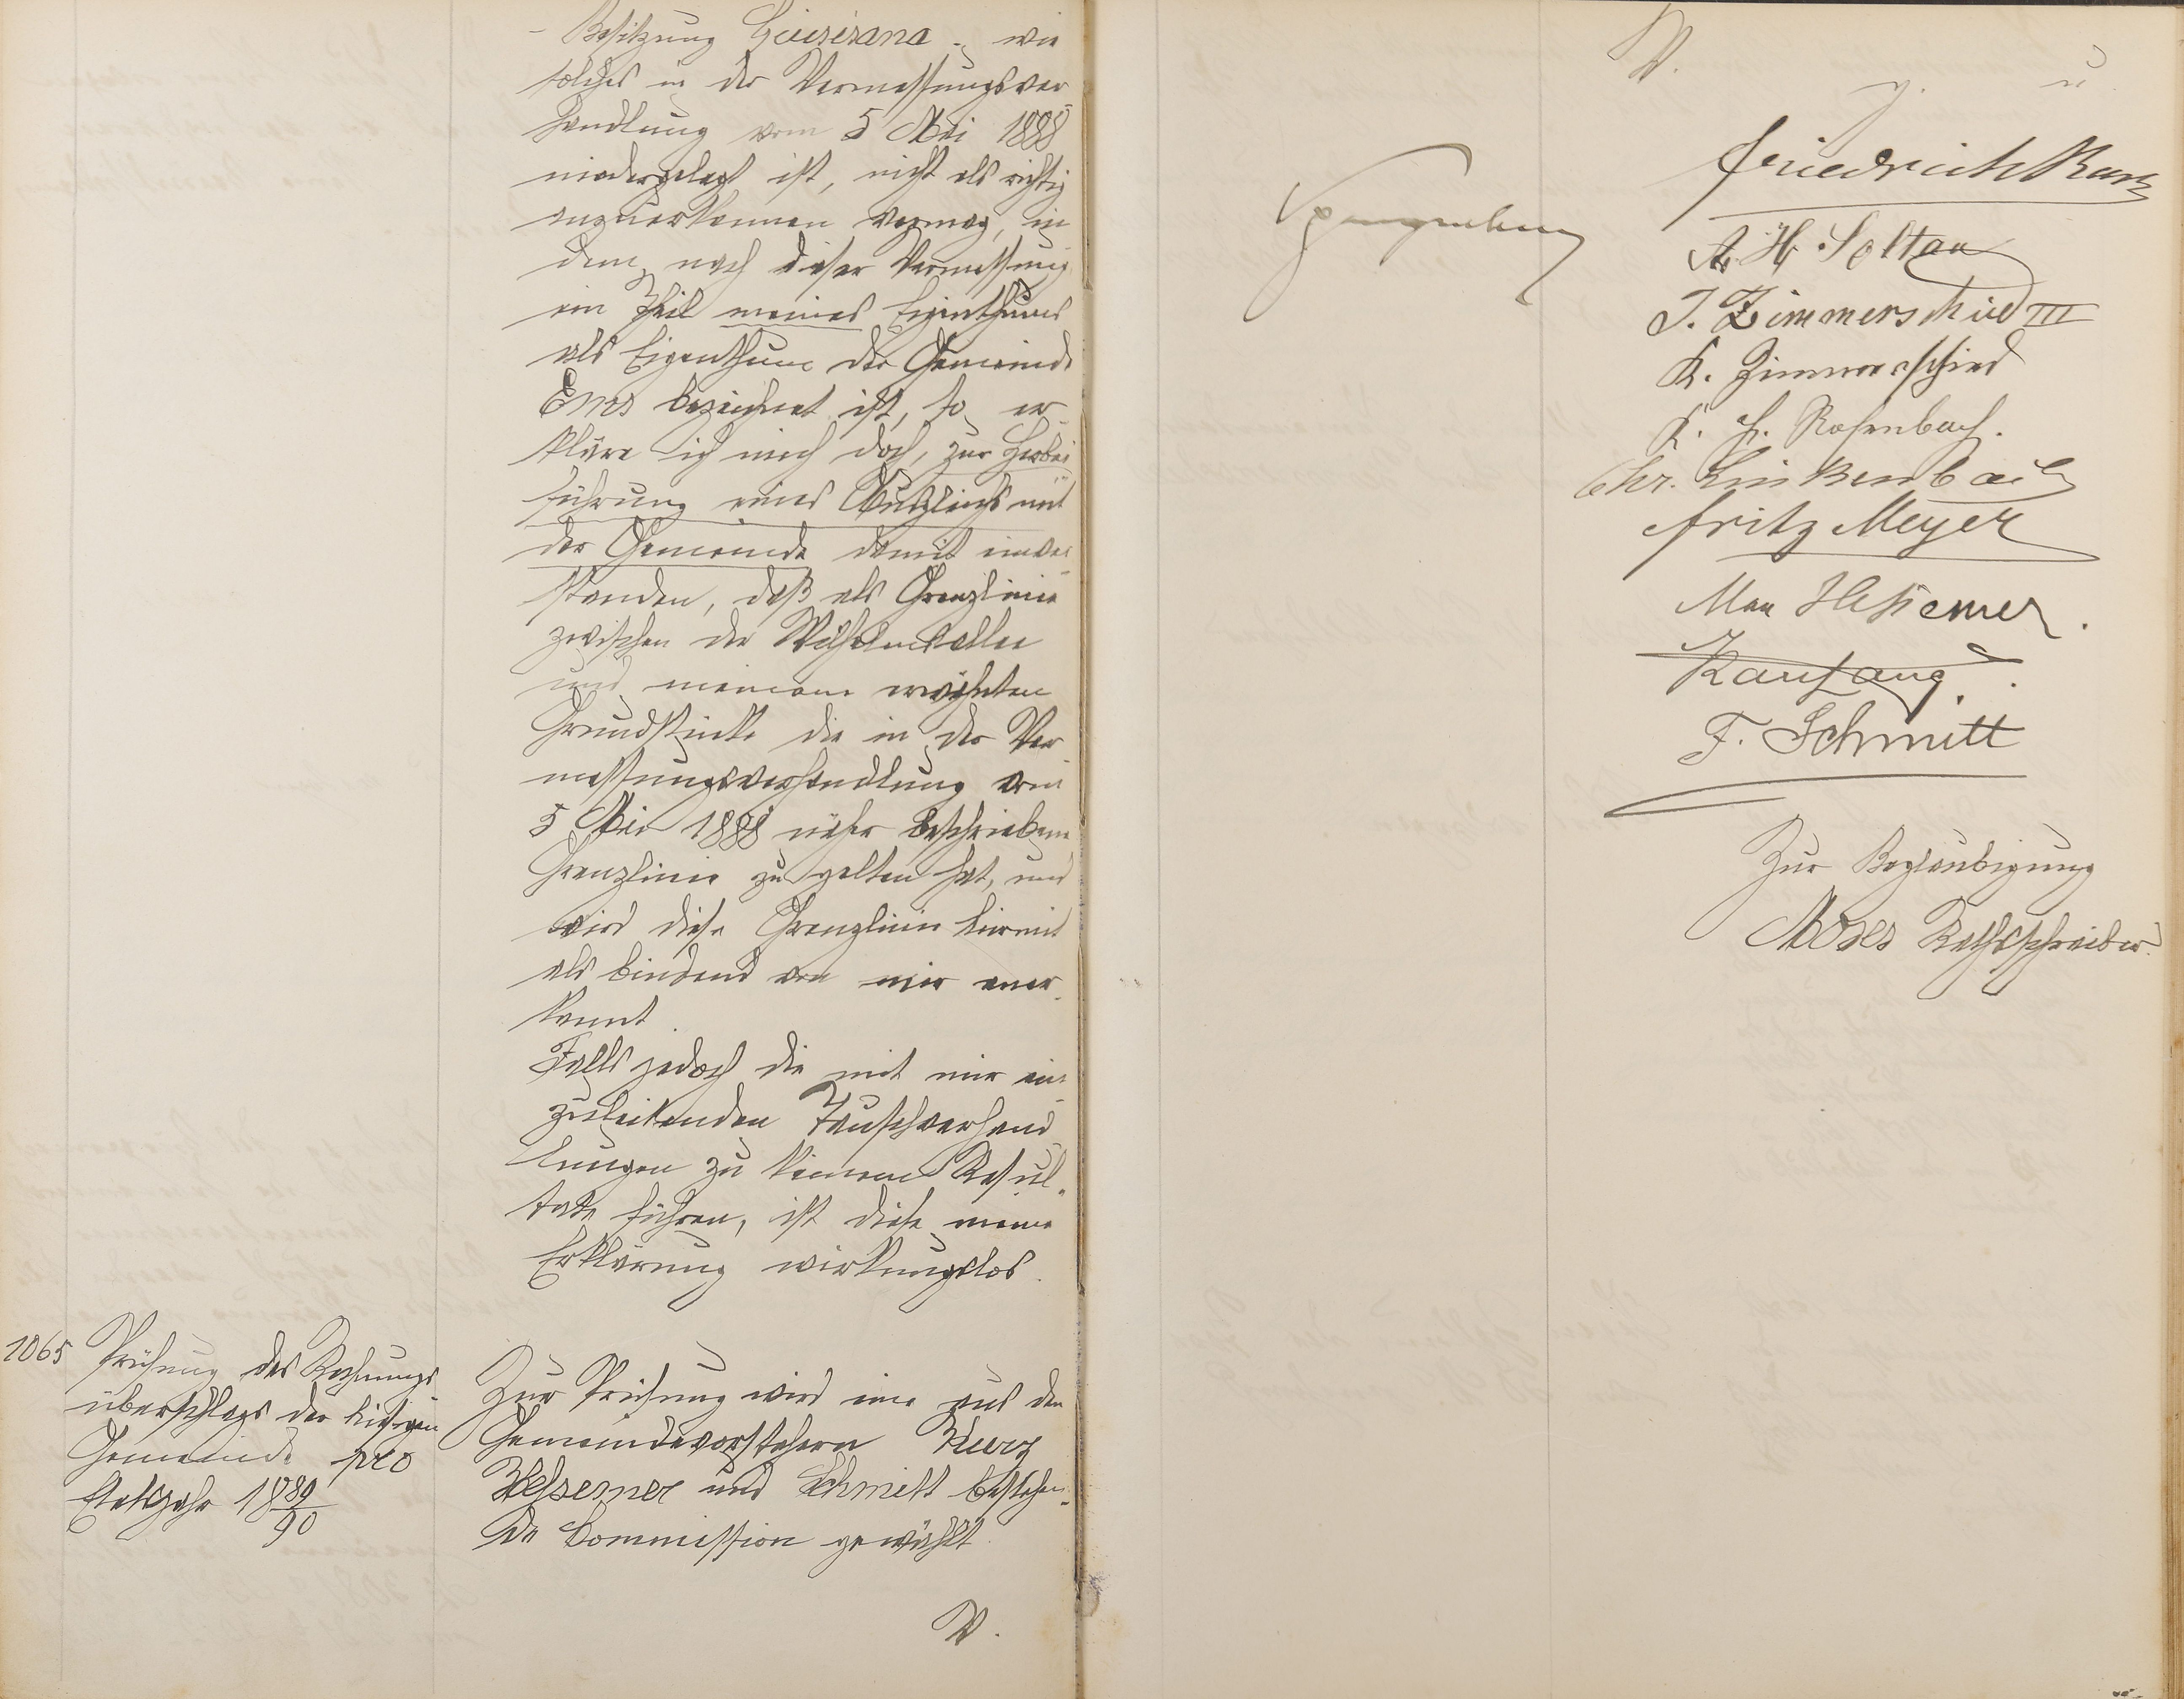 - Besitzung Louisiana - wie
solches in der Vermessungsver
handlung vom 5 Mai 1888
niedergelegt ist, nicht als richtig
anzuerkennen vermag, in
dem nach dieser Vermessung
ein Theil meines Eigenthums
als Eigenthum der Gemeinde
Ems bezeichnet ist, so er
kläre ich mich doch, zur Herbei
führung eines Ausgleichs mit
der Gemeinde damit einver
standen, daß als Grenzlinie
zwischen der Wilhelmsallee
und meinem erwähnten
Grundstücke die in der Ver
messungsverhandlung vom
5 Mai 1888 näher beschriebene
Grenzlinie zu gelten hat, und
wird diese Grenzlinie hiermit
als bindend von mir aner
kannt.
Falls jedoch die mit mir ein
zuleitenden Tauschverhand
lungen zu keinem Resul
tate führen, ist diese meine
Erklärung wirkungslos.
1065 Prüfung des Rechnungs
überschlags der hiesigen
Gemeinde pro
Etatsjahr 1889/90
Zur Prüfung wird eine aus den
Gemeindevorstehern Kurz
Hessemer und Schmitt bestehen
de Commission gewählt
V.
V. g. u.
Friedrich Kurz
A. H. Soltau
J. Zimmerschied III
K. Zimmerschied
K. H. Rosenbach.
Chr. Linkenbach
Fritz Meyer
Max Hessemer.
F. Schmitt
Zur Beglaubigung
Moses Rathsschreiber